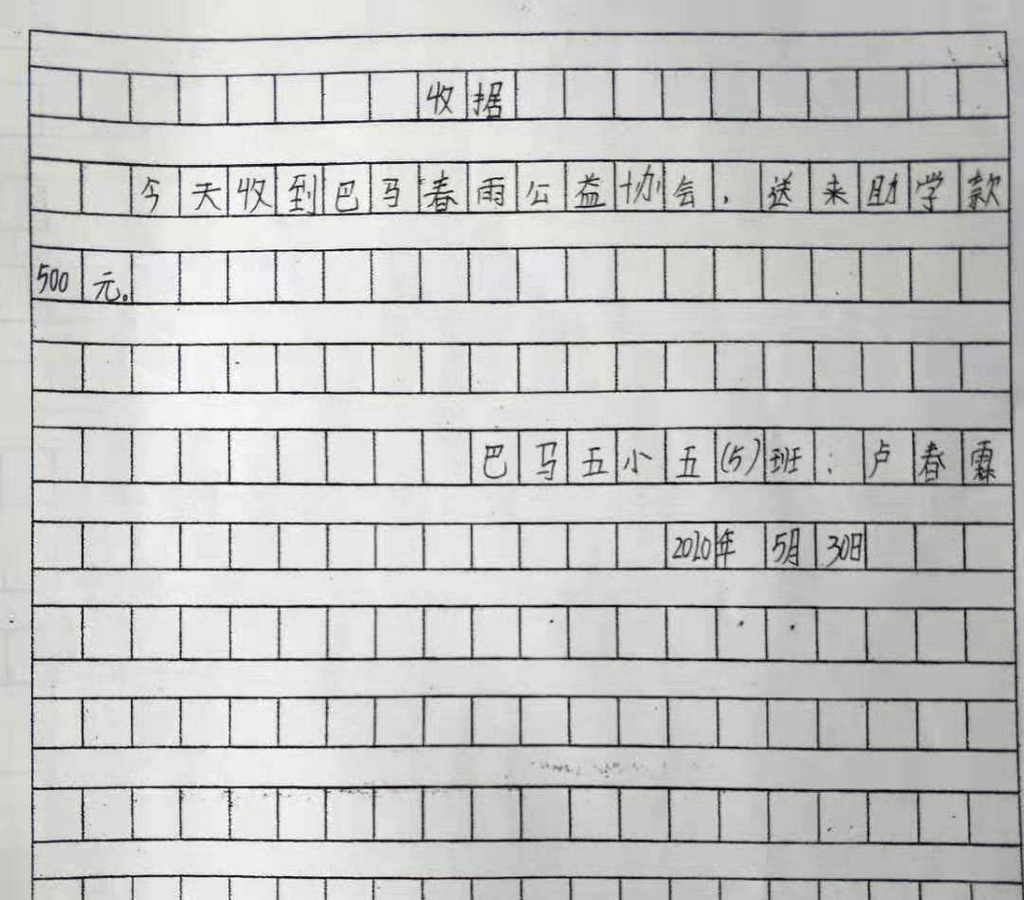 收据
今天收到巴马春雨公益协会,送来助学款
500元.
巴马五小五(5)班:卢春霖
2020年5月30日